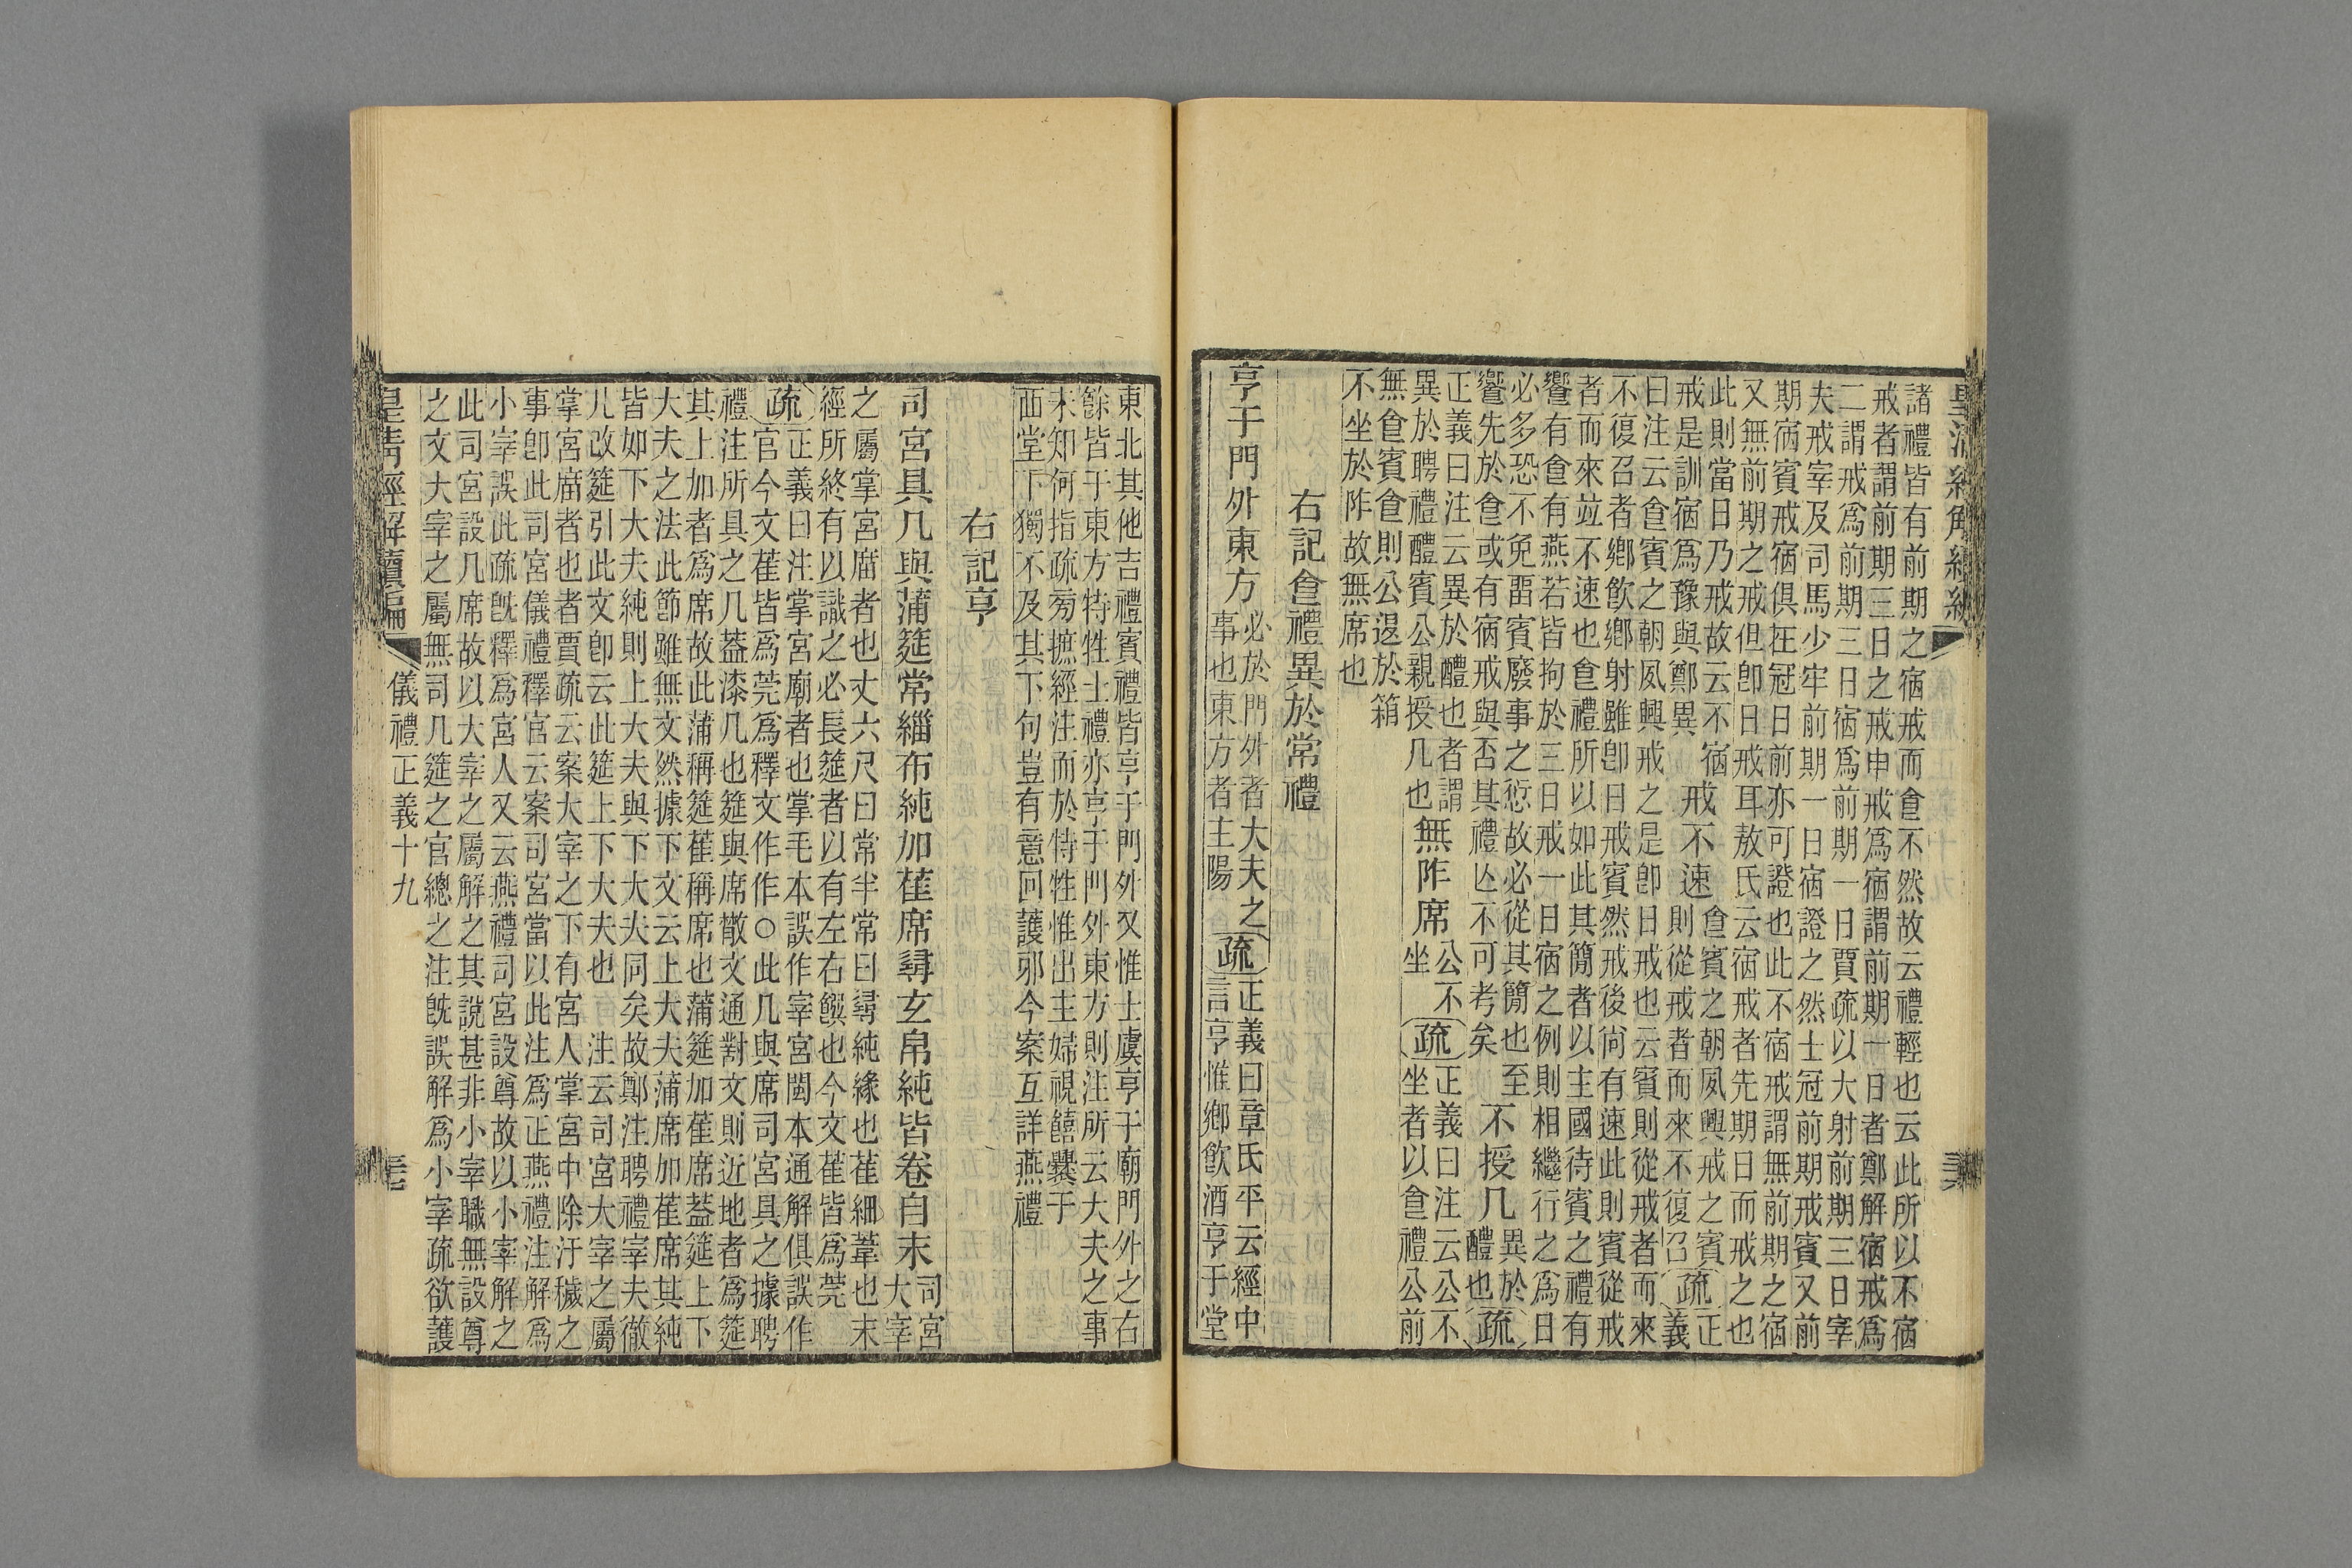 諸禮皆有前期之宿戒而食不然故云禮輕也云此所以不宿
戒者謂前期三日之戒申戒爲宿謂前期一日者鄭解宿戒爲
二謂戒爲前期三日宿爲前期一日賈疏以大射前期三日宰
夫戒宰及司馬少牢前期一日宿證之然士冠前期戒賓又前
期宿賓戒宿俱在冠日前亦可證也此不宿戒謂無前期之宿
又無前期之戒但卽日戒耳敖氏云宿戒者先期日而戒之也
此則當日乃戒故云不宿
戒是訓宿爲豫與鄭異
戒不速
食賓之朝夙興戒之賓
則從戒者而來不復召
疏
正
義
曰注云食賓之朝夙興戒之是卽日戒也云賓則從戒者而來
不復召者鄉飮鄉射雖卽日戒賓然戒後尙有速此則賓從戒
者而來竝不速也食禮所以如此其簡者以主國待賓之禮有
饗有食有燕若皆拘於三日戒一日宿之例則相繼行之爲日
必多恐不免畱賓廢事之愆故必從其簡也至
饗先於食或有宿戒與否其禮亾不可考矣
不授几
異於
醴也
疏
正義曰注云異於醴也者謂
異於聘禮醴賓公親授几也
無阼席
公不
坐
疏
正義曰注云公不
坐者以食禮公前
無食賓食則公退於箱
不坐於阼故無席也
右記食禮異於常禮
亨于門外東方
必於門外者大夫之
事也東方者主陽
疏
正義曰章氏平云經中
言亨惟鄉飮酒亨于堂
東北其他吉禮賓禮皆亨于門外又惟士虞亨于廟門外之右
餘皆于東方特牲士禮亦亨于門外東方則注所云大夫之事
未知何指疏㫄摭經注而於特牲惟出主婦視饎爨于
西堂下獨不及其下句豈有意回護邪今案互詳燕禮
右記亨
司宮具几與蒲筵常緇布純加萑席尋玄帛純皆卷自末
司宮
大宰
之屬掌宮廟者也丈六尺曰常半常曰尋純緣也萑細葦也末
經所終有以識之必長筵者以有左右饌也今文萑皆爲莞
疏
正義曰注掌宮廟者也掌毛本誤作宰宮閩本通解俱誤作
官今文萑皆爲莞爲釋文作作○此几與席司宮具之據聘
禮注所具之几葢漆几也筵與席散文通對文則近地者爲筵
其上加者爲席故此蒲稱筵萑稱席也蒲筵加萑席葢筵上下
大夫之法此節雖無文然據下文云上大夫蒲席加萑席其純
皆如下大夫純則上大夫與下大夫同矣故鄭注聘禮宰夫徹
几改筵引此文卽云此筵上下大夫也 注云司宮大宰之屬
掌宮廟者也者賈疏云案大宰之下有宮人掌宮中除汙穢之
事卽此司宮儀禮釋官云案司宮當以此注爲正燕禮注解爲
小宰誤此疏旣釋爲宮人又云燕禮司宮設尊故以小宰解之
此司宮設几席故以大宰之屬解之其說甚非小宰職無設尊
之文大宰之屬無司几筵之官總之注旣誤解爲小宰疏欲護
皇淸經解續編
儀禮正義十九